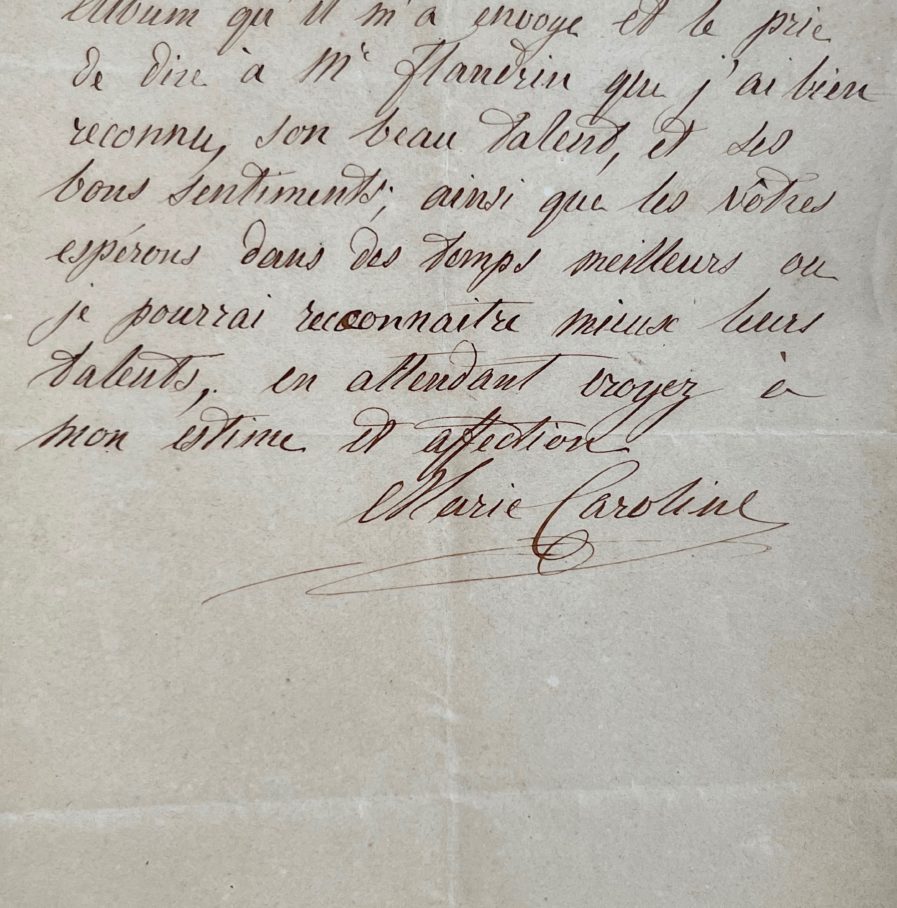 Album qu'il m'a envoyé et le prie
de dire à Mr Flandrin que j'ai bien
reconnu, son beau talent, et ses
bons sentiments; ainsi que les vôtres
espérons dans des temps meilleurs ou
je pourrai reconnaitre mieux leurs
talents, en attendant croyez à
mon estime et affection
Marie Caroline